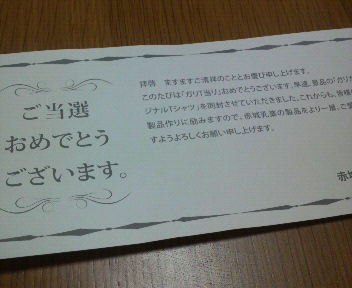 ご当選
おめでとう
ございます。
拝啓 ますますご清祥のこととお慶び申し上げます。
このたびは「ガリT当り」おめでとうございます。早速、景品の「ガリガ
ジナルTシャツ」を同封させていただきました。これからも、皆様に
製品作りに励みますので、赤城乳業の製品をより一層、ご愛
すようよろしくお願い申し上げます。
赤城